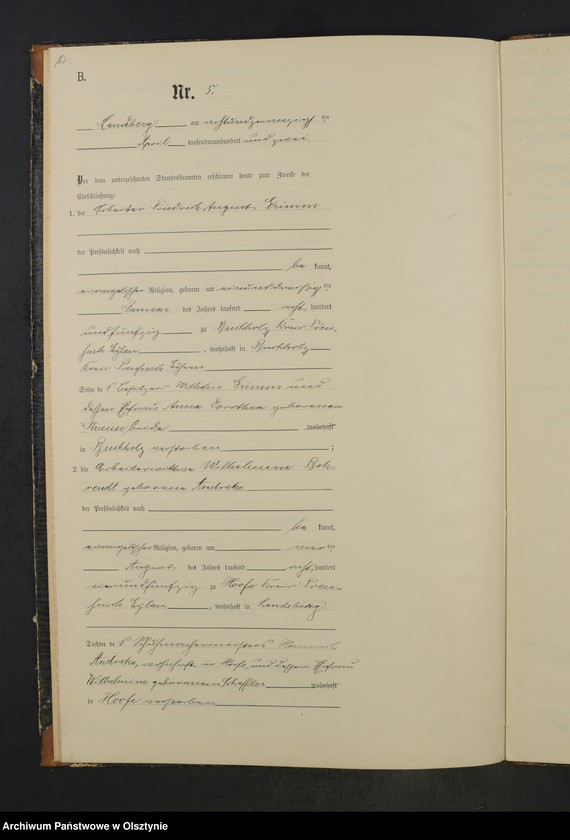 B.
Nr. 5.
Landsberg am achtundzwanzigsten
April tausendneunhundert und zwei
Vor dem unterzeichneten Standesbeamten erschienen heute zum Zwecke der
Eheschließung:
1. der Arbeiter Friedrich August Grimm
der Persönlichkeit nach
be kannt,
evangelischer Religion, geboren am einunddreißigsten
Januar des Jahres tausend acht hundert
undfünfzig zu Buchholz Kreis Preu-
ßisch Eylau, wohnhaft in Buchholz
Kreis Preußisch Eylau
Sohn des Besitzers Wilhelm Grimm und
dessen Ehefrau Anna Dorothea geborenen
Krause beide wohnhaft
in Buchholz verstorben;
2. die Arbeiterwittwe Wilhelmine Beh-
rendt geborene Andreke
der Persönlichkeit nach
be kannt,
evangelischer Religion, geboren am vierten
August des Jahres tausend acht hundert
undfünfzig zu Hoofe Kreis Preu-
ßisch Eylau, wohnhaft in Landsberg
Tochter des Schuhmachermeisters
Andreke, wohnhaft in Hoofe, und dessen Ehefrau
Wilhelmine geborenen Scheffler wohnhaft
in Hoofe verstorben
Archiwum Państwowe w Olsztynie